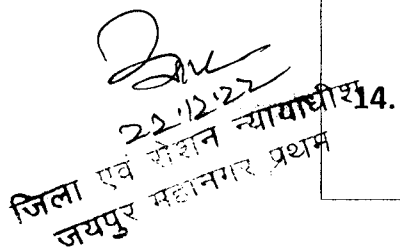 22/12/22
जिला एवं सेशन न्यायाधीश
14.
जयपुर महानगर प्रथम